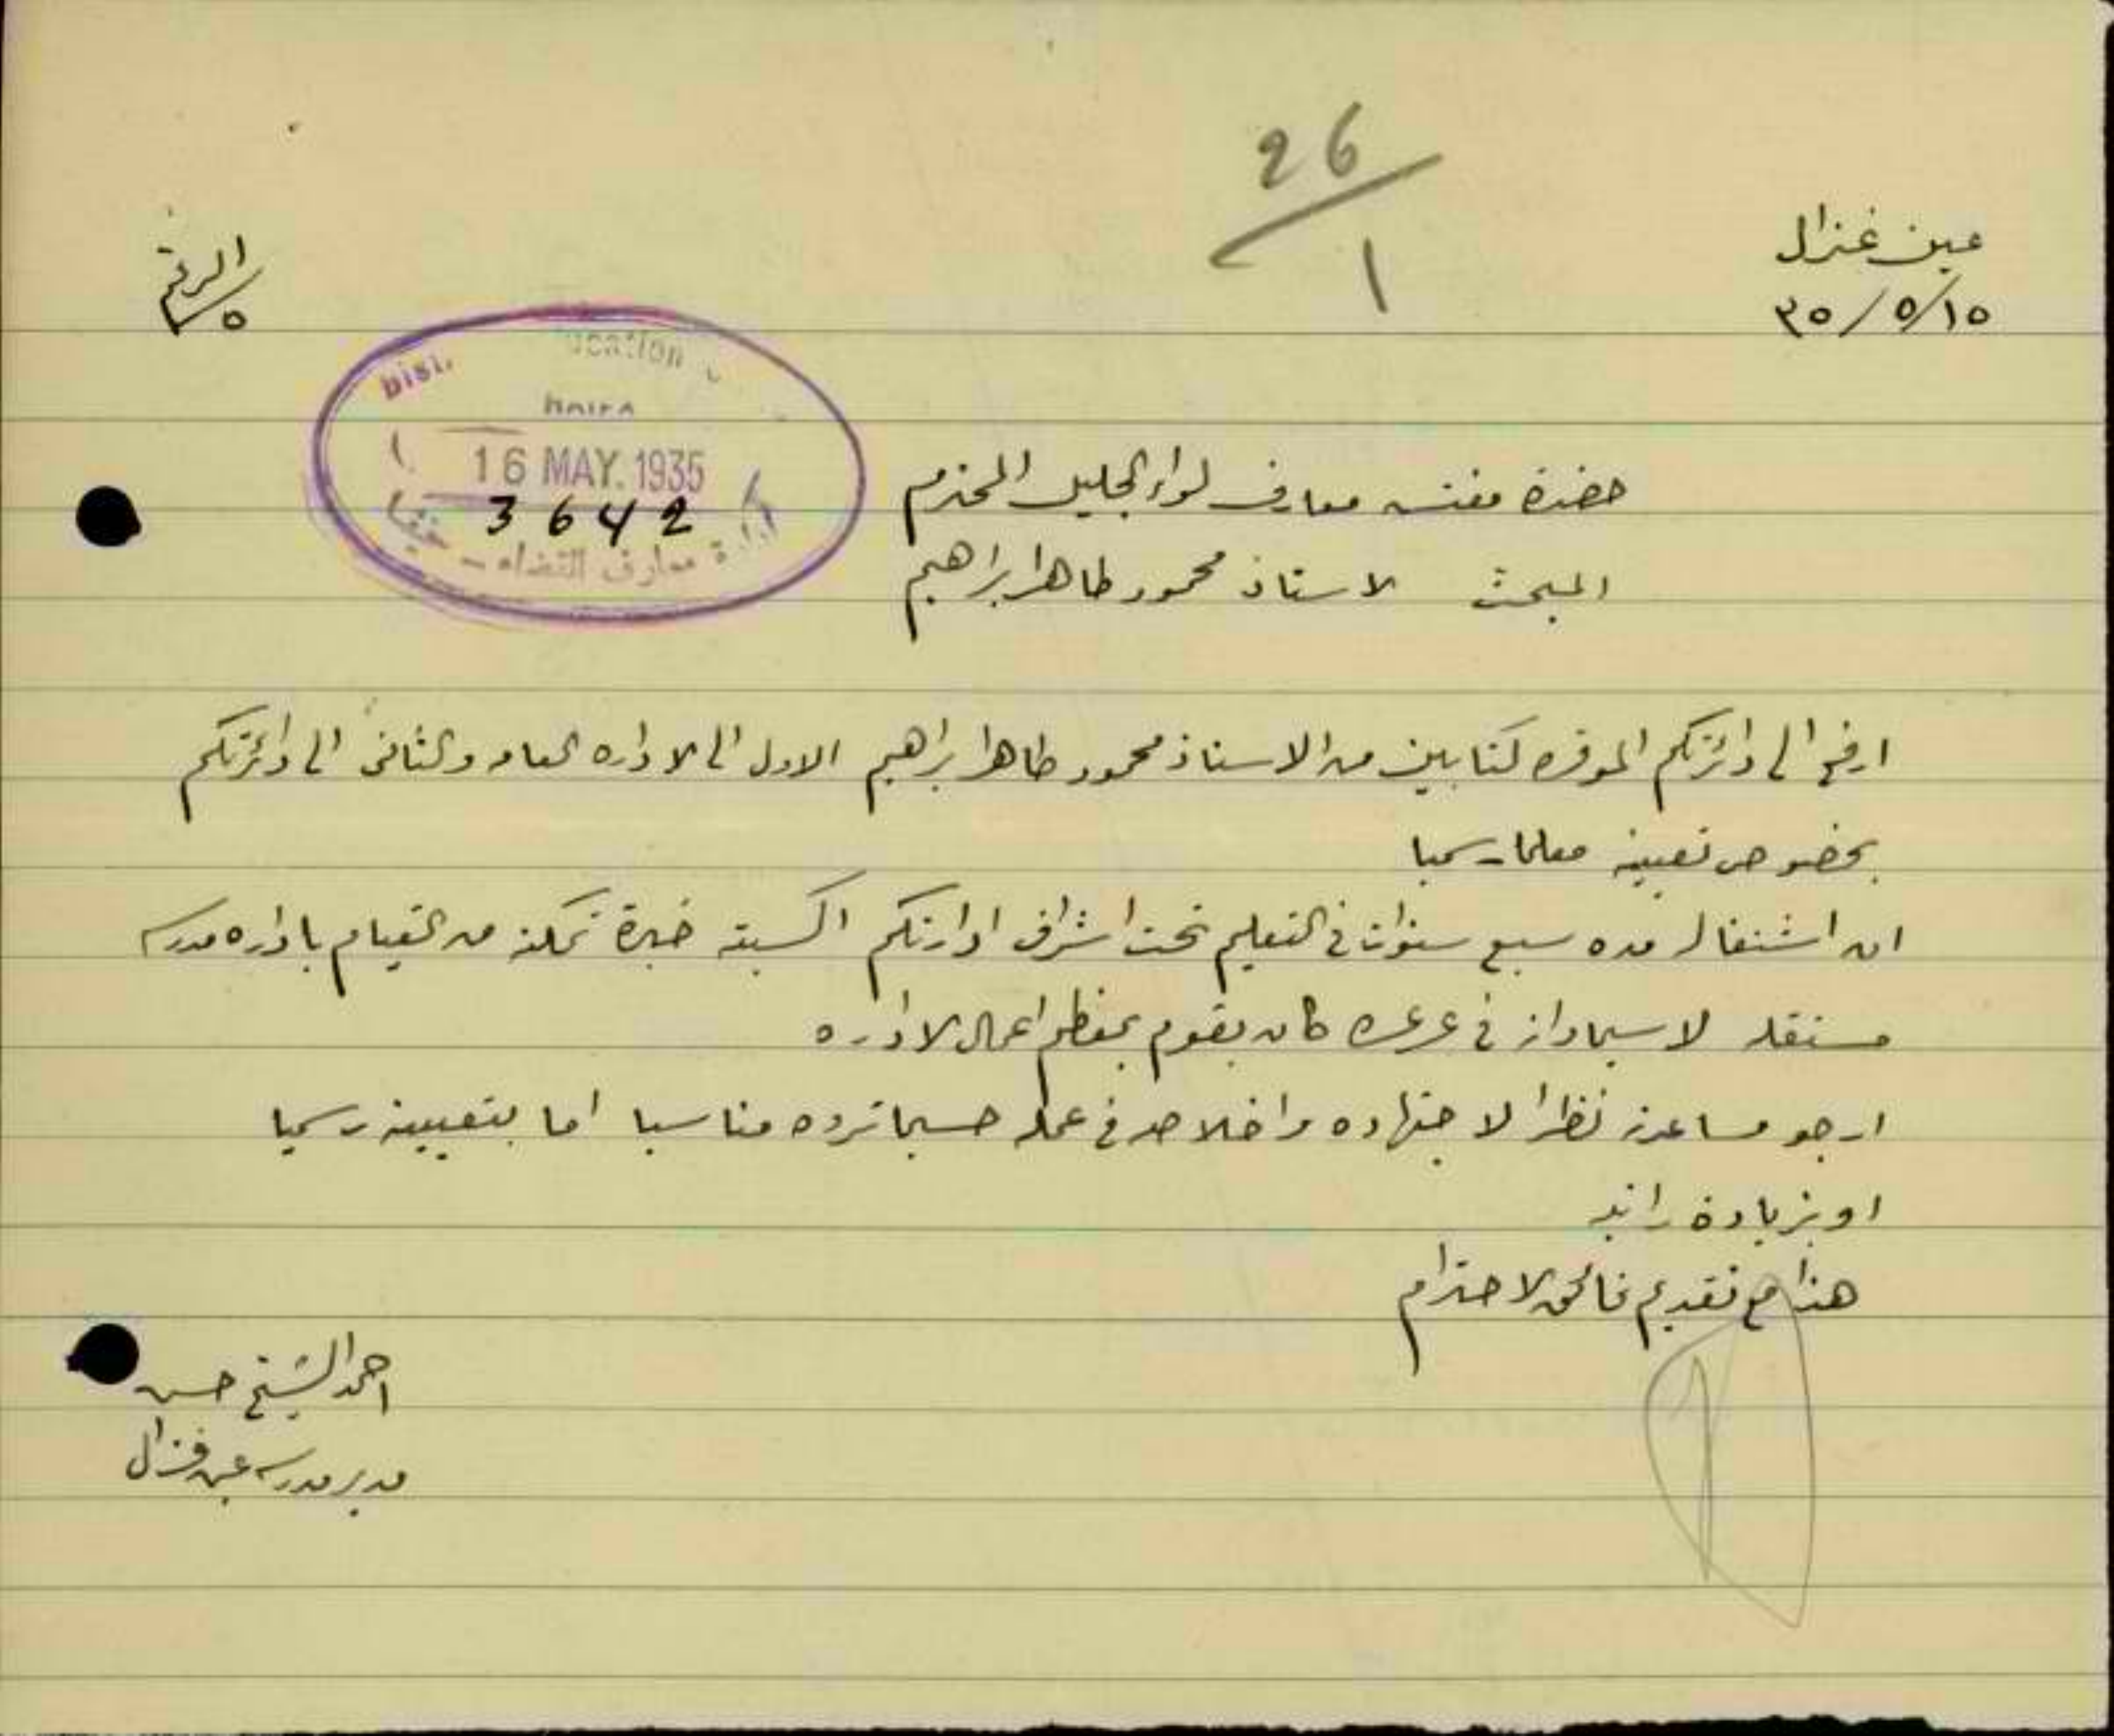 26
1
عين غزال
٣٥/٥/١٥
الرقم
٥
Dist. ucation
HAIFA
16 MAY. 1935
3642
معارف القضاء - حيفا
حضرة مفتش معارف لواء الجليل المحترم
المبحث الاستاذ محمود طاهر ابراهيم
ارفع الى دائرتكم الموقره كتابين من الاستاذ محمود طاهر ابراهيم الاول الى الاداره العامه والثاني الى دائرتكم
بخصوص تعيينه معلما رسميا
ان اشتغاله مده سبع سنوات في التعليم تحت اشراف ادارتكم اكسبته خبرة تمكنه من القيام باداره مدرسه
مستقله لاسيما وانه في عرعره كان يقوم بمعظم اعمال الاداره
ارجو مساعدته نظرا لاجتهاده واخلاصه في عمله حسبما تروه مناسبا اما بتعيينه رسميا
او بزيادة راتبه
هذا مع تقديم فائق الاحترام
احمد الشيخ حسن
مدير مدرسه عين غزال